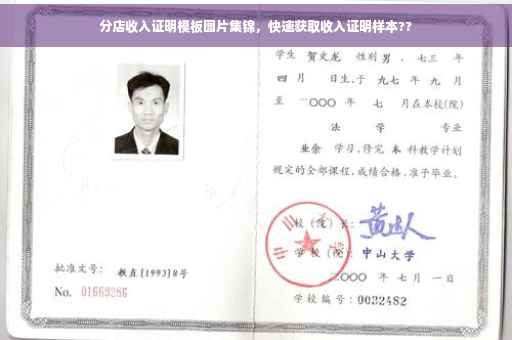 分店收入证明模板图片集锦，快速获取收入证明样本??
学生 贺文龙 性别 男 ，七三 年
四 月 日生，于 九七 年 九 月
至 二〇〇〇 年 七 月在本校(院)
法 学 专业
业余 学习，修完 本 科教学计划
规定的全部课程，成绩合格，准予毕业。
校 (院) 长：
学 校 (院)： 中山大学
批准文号： 教直[1993]8号
二〇〇〇 年 七 月 一 日
No. 01663286
学校编号：0032482